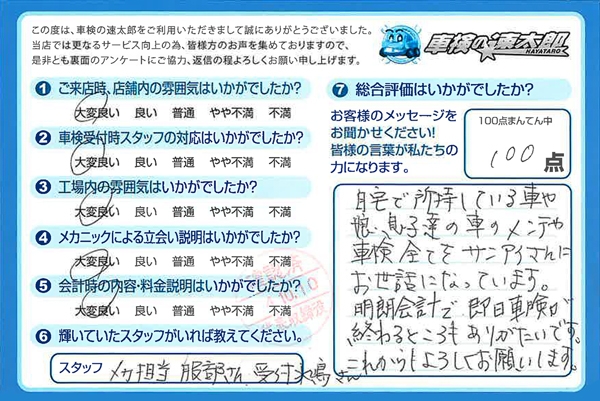 この度は、車検の速太郎をご利用いただきまして誠にありがとうございました。
当店では更なるサービス向上の為、皆様方のお声を集めておりますので、
是非とも裏面のアンケートにご協力、返信の程よろしくお願い申し上げます。
車検の速太郎
HAYATARO
1 ご来店時、店舗内の雰囲気はいかがでしたか?
大変良い 良い 普通 やや不満 不満
2 車検受付時スタッフの対応はいかがでしたか?
大変良い 良い 普通 やや不満 不満
3 工場内の雰囲気はいかがでしたか?
大変良い 良い 普通 やや不満 不満
4 メカニックによる立会い説明はいかがでしたか?
大変良い 良い 普通 やや不満 不満
5 会計時の内容・料金説明はいかがでしたか?
大変良い 良い 普通 やや不満 不満
6 輝いていたスタッフがいれば教えてください。
スタッフ メカ担当 服部さん、受付 水嶋さん
7 総合評価はいかがでしたか?
お客様のメッセージを
お聞かせください!
皆様の言葉が私たちの
力になります。
100点まんてん中
100 点
自宅で所持している車や
娘、息子達の車のメンテや
車検全てをサンアイさんに
お世話になっています。
明朗会計で即日車検が
終わるところもありがたいです。
これからもよろしくお願いします。
10.10